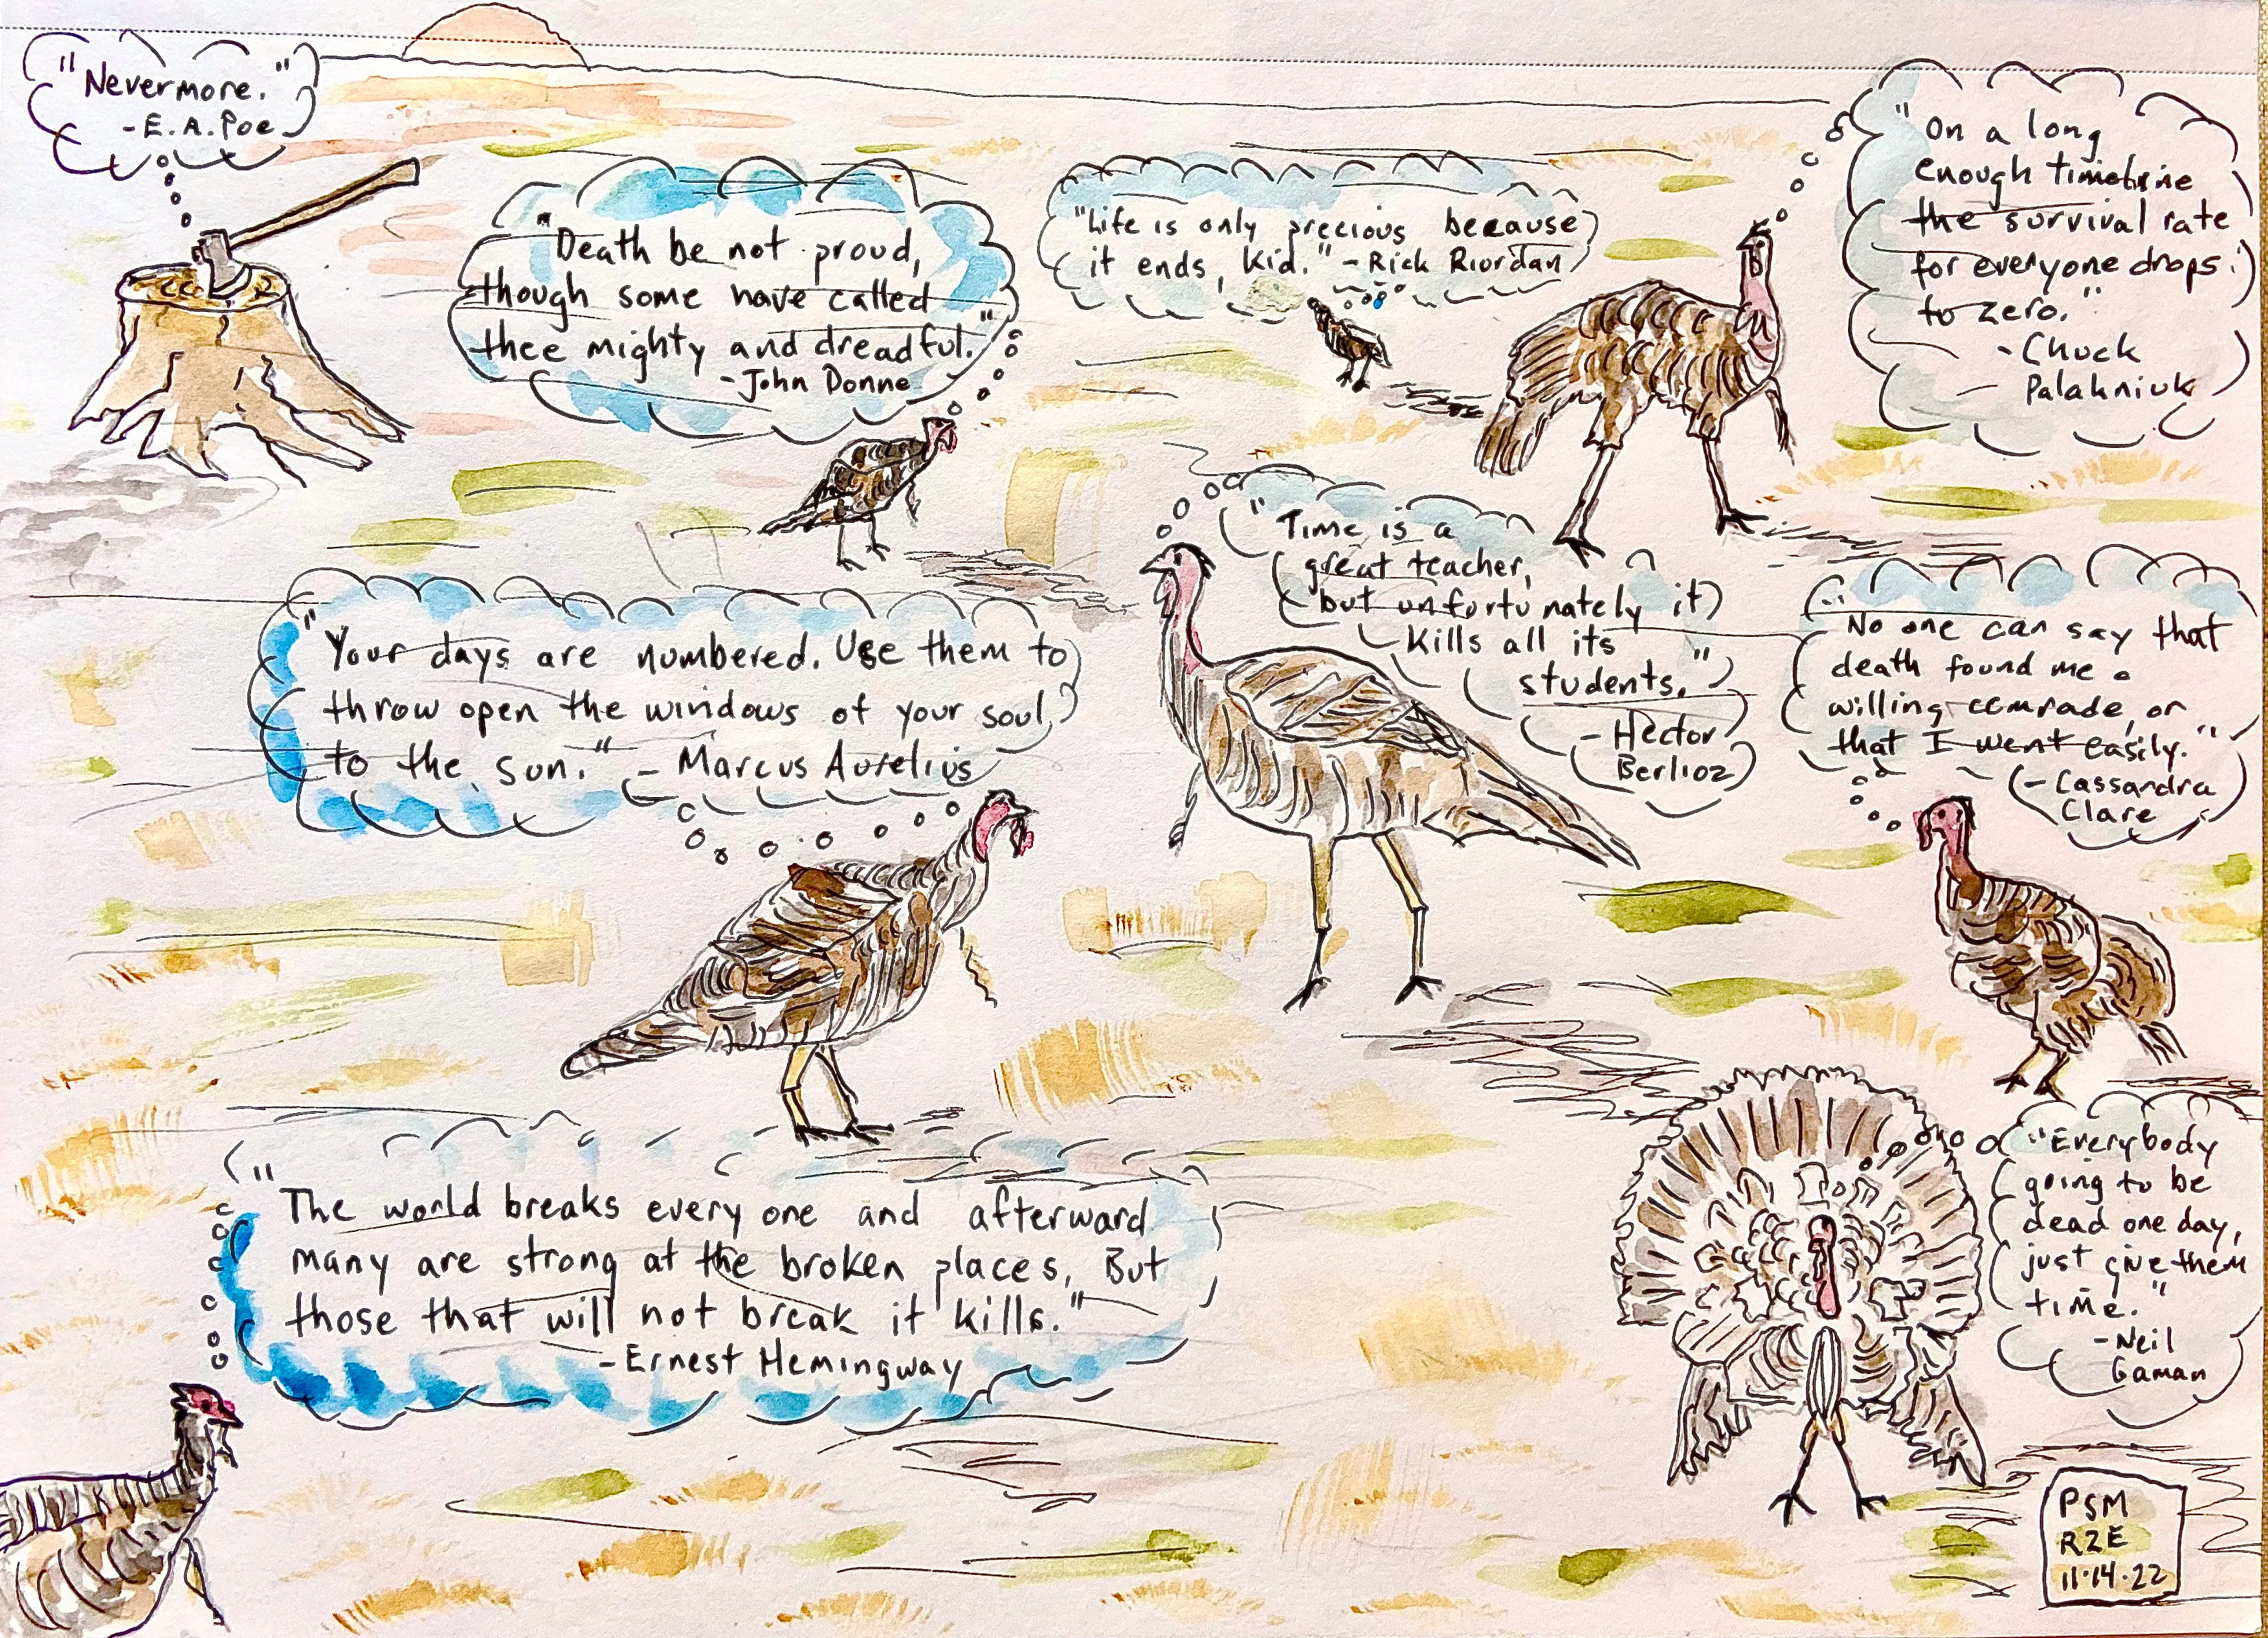 "Nevermore."
-E.A.Poe
"Death be not proud,
though some have called
thee mighty and dreadful."
-John Donne
"Life is only precious because
it ends, kid." -Rick Riordan
"On a long
enough timeline
the survival rate
for everyone drops
to zero."
-Chuck
Palahniuk
"Time is a
great teacher,
but unfortunately it
kills all its
students."
-Hector
Berlioz
"Your days are numbered. Use them to
throw open the windows of your soul
to the sun." - Marcus Aurelius
"No one can say that
death found me a
willing comrade, or
that I went easily."
-Cassandra
Clare
"The world breaks every one and afterward
many are strong at the broken places, But
those that will not break it kills."
-Ernest Hemingway
"Everybody
going to be
dead one day,
just give them
time."
-Neil
Gaman
PSM
RZE
11.14.22